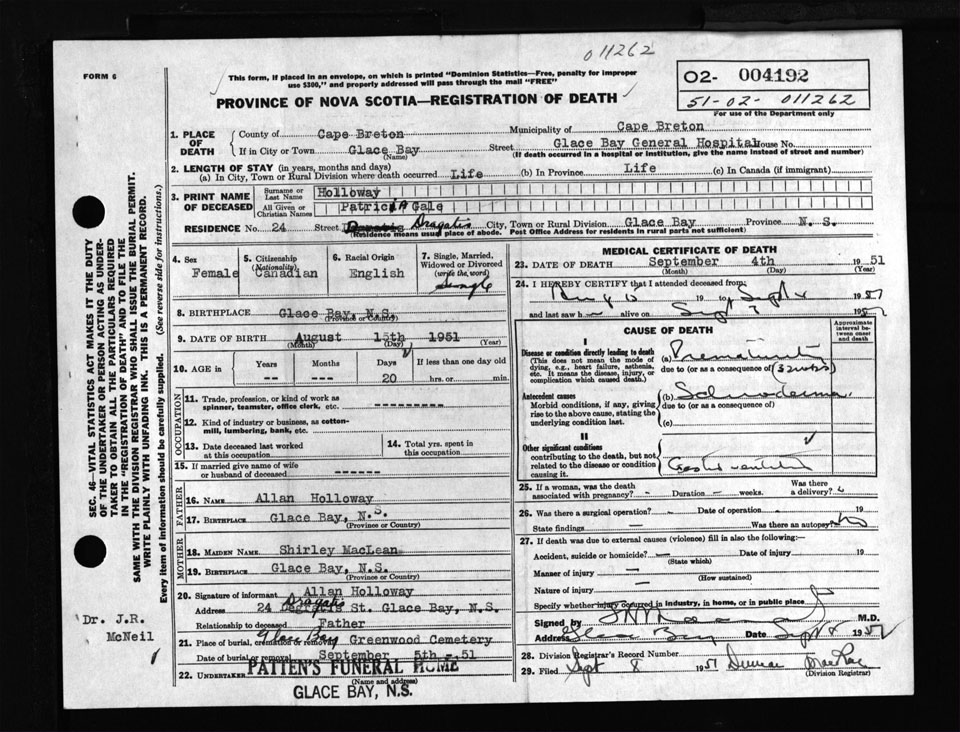 011262
FORM 6
This form, if placed in an envelope, on which is printed "Dominion Statistics—Free, penalty for improper
use $300," and properly addressed will pass through the mail "FREE"
PROVINCE OF NOVA SCOTIA—REGISTRATION OF DEATH
02- 004192
51-02- 011262
For use of the Department only
SEC. 46—VITAL STATISTICS ACT MAKES IT THE DUTY
OF THE UNDERTAKER OR PERSON ACTING AS UNDER-
TAKER TO OBTAIN ALL THE PARTICULARS REQUIRED
IN THE "REGISTRATION OF DEATH" AND TO FILE THE
SAME WITH THE DIVISION REGISTRAR WHO SHALL ISSUE THE BURIAL PERMIT.
WRITE PLAINLY WITH UNFADING INK. THIS IS A PERMANENT RECORD.
Every item of information should be carefully supplied. (See reverse side for instructions.)
Dr. J.R.
McNeil
1. PLACE OF DEATH
County of Cape Breton Municipality of Cape Breton
If in City or Town Glace Bay Street Glace Bay General Hospital House No.
(Name) (If death occurred in a hospital or institution, give the name instead of street and number)
2. LENGTH OF STAY (in years, months and days)
(a) In City, Town or Rural Division where death occurred Life (b) In Province Life (c) In Canada (if immigrant)
3. PRINT NAME OF DECEASED
Surname or Last Name Holloway
All Given or Christian Names Patricia Gale
RESIDENCE No. 24 Street Dragatis City, Town or Rural Division Glace Bay Province N. S.
(Residence means usual place of abode. Post Office Address for residents in rural parts not sufficient)
4. Sex Female
5. Citizenship (Nationality) Canadian
6. Racial Origin English
7. Single, Married, Widowed or Divorced (write the word) Single
8. BIRTHPLACE Glace Bay, N.S.
(Province or Country)
9. DATE OF BIRTH August 15th 1951
(Month) (Day) (Year)
10. AGE in Years -- Months --- Days 20 If less than one day hrs. or min.
OCCUPATION
11. Trade, profession, or kind of work as
spinner, teamster, office clerk, etc. ----------
12. Kind of industry or business, as cotton-
mill, lumbering, bank, etc.
13. Date deceased last worked
at this occupation
14. Total yrs. spent in
this occupation
15. If married give name of wife
or husband of deceased ------
FATHER
16. NAME Allan Holloway
17. BIRTHPLACE Glace Bay, N.S.
(Province or Country)
MOTHER
18. MAIDEN NAME Shirley MacLean
19. BIRTHPLACE Glace Bay, N.S.
(Province or Country)
20. Signature of informant Allan Holloway
Address 24 Dragatis St. Glace Bay, N.S.
Relationship to deceased Father
21. Place of burial, cremation or removal Glace Bay Greenwood Cemetery
Date of burial or removal September 5th - 51
22. UNDERTAKER PATTEN'S FUNERAL HOME
(Name and address)
GLACE BAY, N.S.
MEDICAL CERTIFICATE OF DEATH
23. DATE OF DEATH September 4th 1951
(Month) (Day) (Year)
24. I HEREBY CERTIFY that I attended deceased from:
Aug 15 19 to Sept 4 1951
and last saw h alive on Sept 1951
CAUSE OF DEATH
Approximate interval between onset and death
I
Disease or condition directly leading to death
(This does not mean the mode of
dying, e.g., heart failure, asthenia,
etc. It means the disease, injury, or
complication which caused death.)
(a) Prematurity
due to (or as a consequence of) (32 wks)
Antecedent causes
Morbid conditions, if any, giving
rise to the above cause, stating the
underlying condition last.
(b) Scleroderma
due to (or as a consequence of)
(c)
II
Other significant conditions
contributing to the death, but not
related to the disease or condition
causing it.
25. If a woman, was the death
associated with pregnancy? - Duration - weeks. Was there a delivery?
26. Was there a surgical operation? - Date of operation - 19
State findings — Was there an autopsy? No
27. If death was due to external causes (violence) fill in also the following:—
Accident, suicide or homicide? — Date of injury 19
(State which)
Manner of injury —
(How sustained)
Nature of injury —
Specify whether injury occurred in industry, in home, or in public place
Signed by M.D.
Address Glace Bay Date Sept 8 1951
28. Division Registrar's Record Number
29. Filed Sept 8 1951 Duncan MacRae
(Division Registrar)